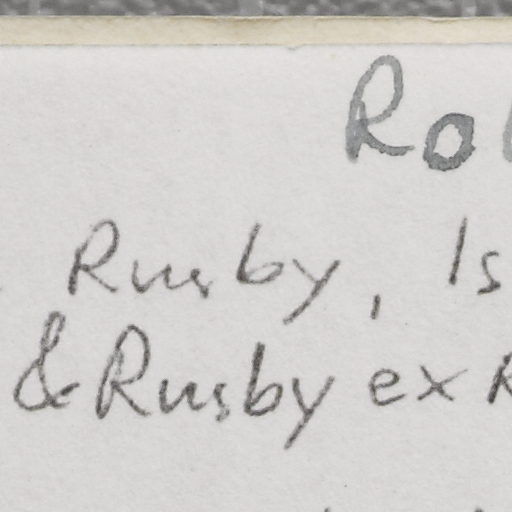 Rusby, Is
& Rusby ex